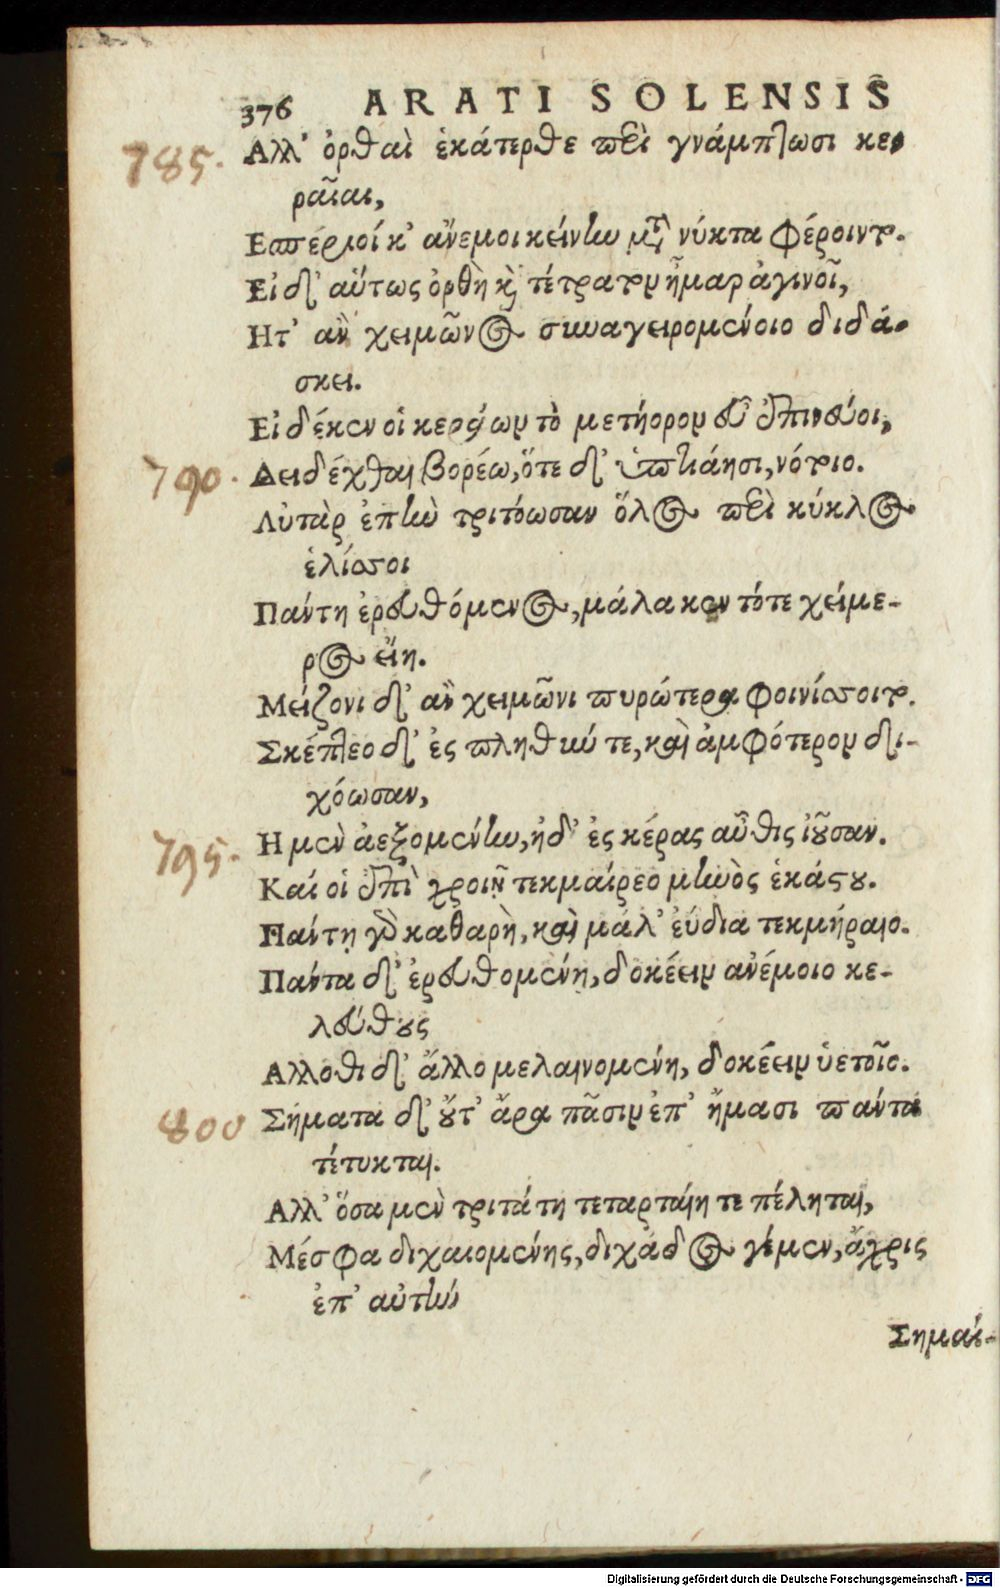 376 ARATI SOLENSIS
785. Αλλ' ὀρθαὶ ἑκάτερθε περὶ γνάμπτωσι κε-
ραῖαι,
Εσπέριοί κ' ἄνεμοι κείνην μετὰ νύκτα φέροιντο.
Εἰ δ' αὔτως ὀρθὴ καὶ τέτρατον ἦμαρ ἀγινοῖ,
Ητ' ἂν χειμῶνος συναγειρομένοιο διδά-
σκει.
Εἰ δέ κεν οἱ κεράων τὸ μετήορον εὖ ἐπινεύοι,
790. Δειδέχθαι βορέω, ὅτε δ' ὑπτιάησι, νότοιο.
Αὐτὰρ ἐπὴν τριτόωσαν ὅλος περὶ κύκλος
ἑλίσσοι
Πάντη ἐρευθόμενος, μάλα κεν τότε χείμε-
ρος εἴη.
Μείζονι δ' ἂν χειμῶνι πυρώτερα φοινίσσοιτο.
Σκέπτεο δ' ἐς πληθύν τε, καὶ ἀμφότερον δι-
χόωσαν,
795. Η μὲν ἀεξομένην, ἠδ' ἐς κέρας αὖθις ἰοῦσαν.
Καί οἱ ἐπὶ χροιῇ τεκμαίρεο μηνὸς ἑκάστου.
Πάντη γὰρ καθαρὴ, καὶ μάλ' εὔδια τεκμήραιο.
Πάντα δ' ἐρευθομένη, δοκέειν ἀνέμοιο κε-
λεύθους
Αλλοθι δ' ἄλλο μελαινομένη, δοκέειν ὑετοῖο.
800 Σήματα δ' οὔτ' ἄρα πᾶσιν ἐπ' ἤμασι πάντα
τέτυκται.
Αλλ' ὅσα μὲν τριτάτη τεταρταίη τε πέληται,
Μέσφα διχαιομένης, διχάδος γέ μεν, ἄχρις
ἐπ' αὐτὴν
Σημαί-
Digitalisierung gefördert durch die Deutsche Forschungsgemeinschaft - DFG